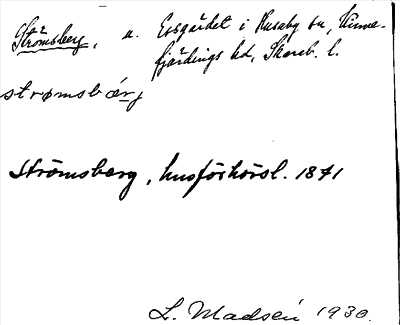 Strömsberg, u. Essgärdet i Husaby sn, Kinne-
fjärdings hd, Skarab. l.
strømsbærj
Strömsberg, husförhörsl. 1871
L. Madsén 1930.